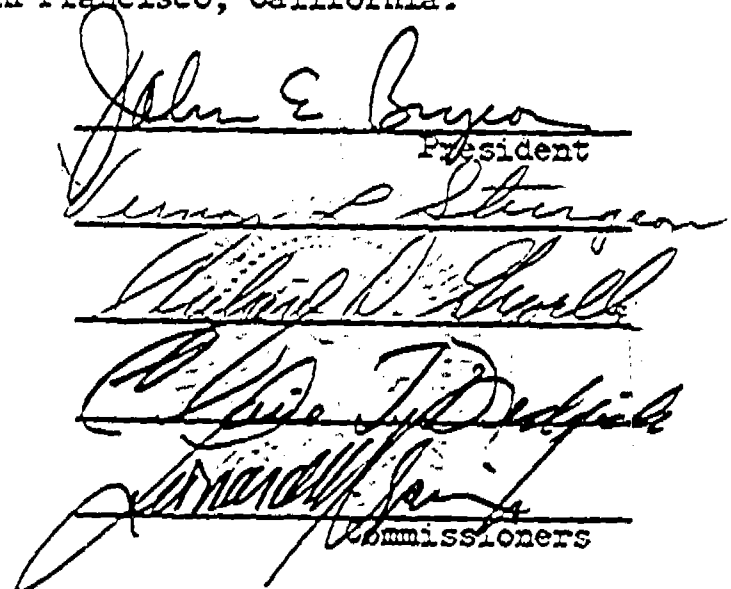 San Francisco, California.
John E Bryson
President
Vernon L Sturgeon
Richard D. Gravelle
Claire T. Dedrick
Leonard M. Grimes
Commissioners